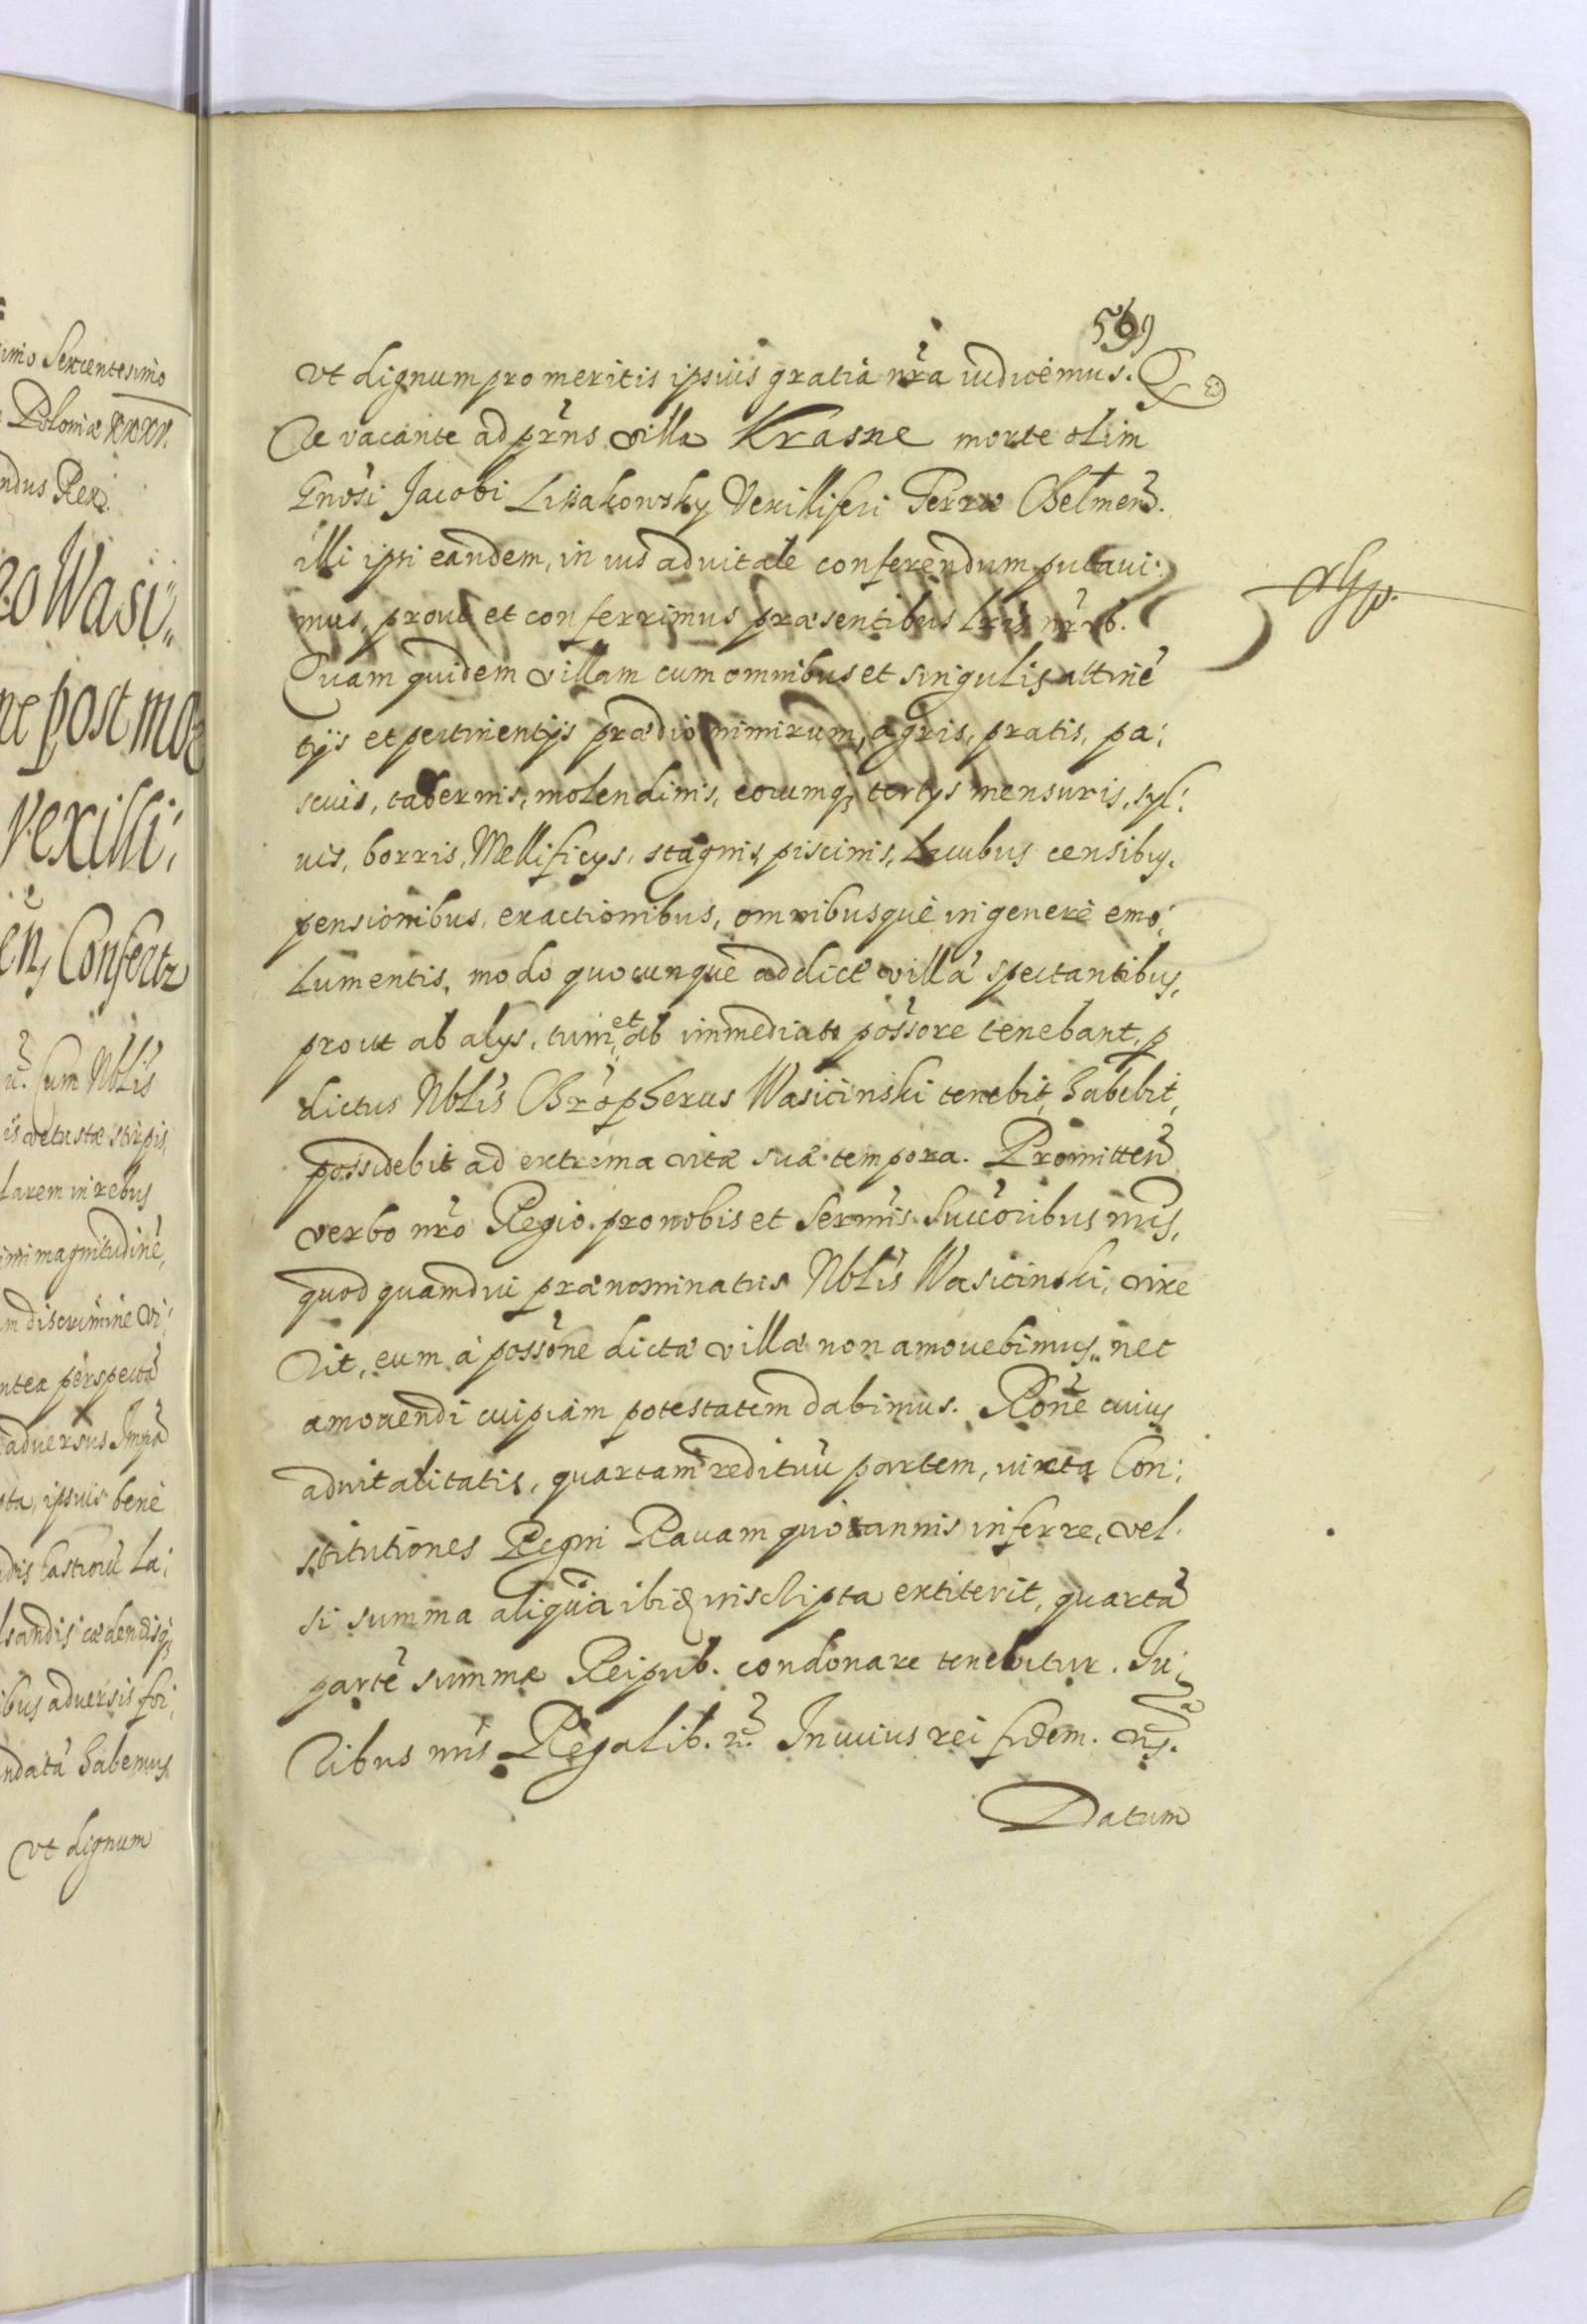 imo Sexcentesimo
Poloniæ XXXV.
ndus Rex.
Wasi„
ne post mor
vexilli:
en, Confertr
Cum Nblis
vetustæ stirpis,
larem in rebus
imi magnitudinē,
m discrimine vi:
ntea perspectā
aduersus Impa
ta, ipsius benè
dis Castrorū La:
sandis cædendisq;
ibus aduersis for:
ndatā habemus
vt dignum
569
vt dignum pro meritis ipsius gratiā nr̃a iudicemus. Q
Væ vacante ad prñs villa Krasne morte olim
Gnosi Jacobi Lissakowsky Vexilliferi Terræ Chelmen̄.
illi ipsi eandem, in ius aduitale conferendum putaui:
mus, prout et conferrimus præsentibus Lris nr̃is.
Quam quidem villam cum omnibus et singulis attinē
tijs et pertinentijs prædio nimirum, agris, pratis, pa:
scuis, tabernis, molendinis, eorumq; tertys mensuris, syl:
uis, borris, Mellificys, stagnis, piscinis, Lacubus censibus,
pensionibus, exactionibus, omnibusquè in generè emo:
Lumentis, modo quocunquè ad dictā villā spectantibus,
prout ab alys, tum et ab immediato possore tenebant, p
dictus Nblis Chrõpherus Wasicinski tenebit, habebit,
possidebit ad extrema vitæ suæ tempora. Promitten̄
verbo nr̃o Regio. pro nobis et Sermis Succoribus nris,
quod quamdiu prænominatus Nblis Wasicinski, vixe
Rit, eum à possone dictæ villæ non amouebimus, nec
amouendi cuipiam potestatem dabimus. Rone cuius
aduitalitatis, quartam redituū partem, iuxta Con:
stitutiones Regni Rauam quotannis inferre, vel
si summa aliqua ibid inscripta extiterit, quartā
partē summæ Reipub. condonare tenebitur. Iu:
Ribus nris Regalib. Incuius rei fidem.
Datum